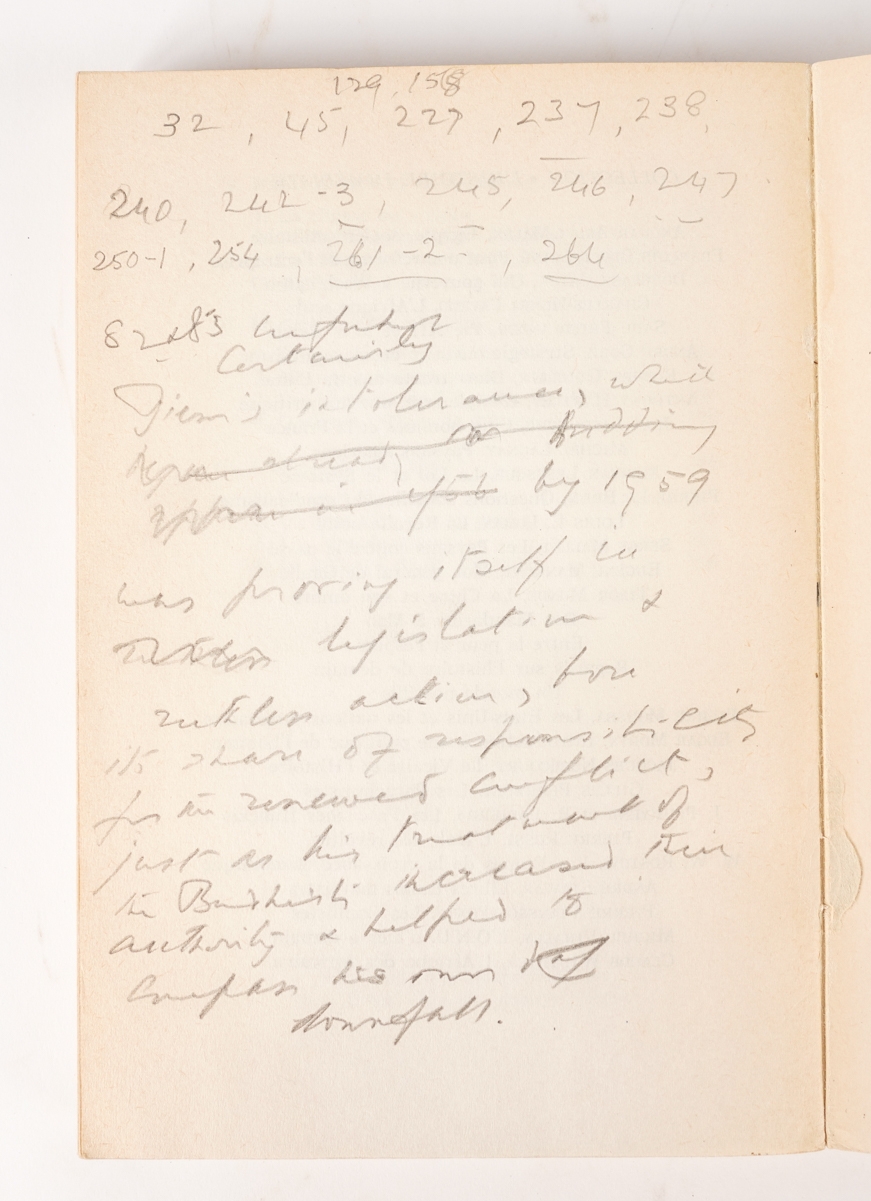 129, 158
32, 45, 227, 237, 238,
240, 242-3, 245, 246, 247
250-1, 254, 261-2, 264
82 & 83
Certainly
Diem's intolerance, which
by 1959
was proving itself in
legislation &
ruthless action, bore
its share of responsibility
for the renewed conflict,
just as his treatment of
the Buddhists increased their
authority & helped to
compass his own
downfall.